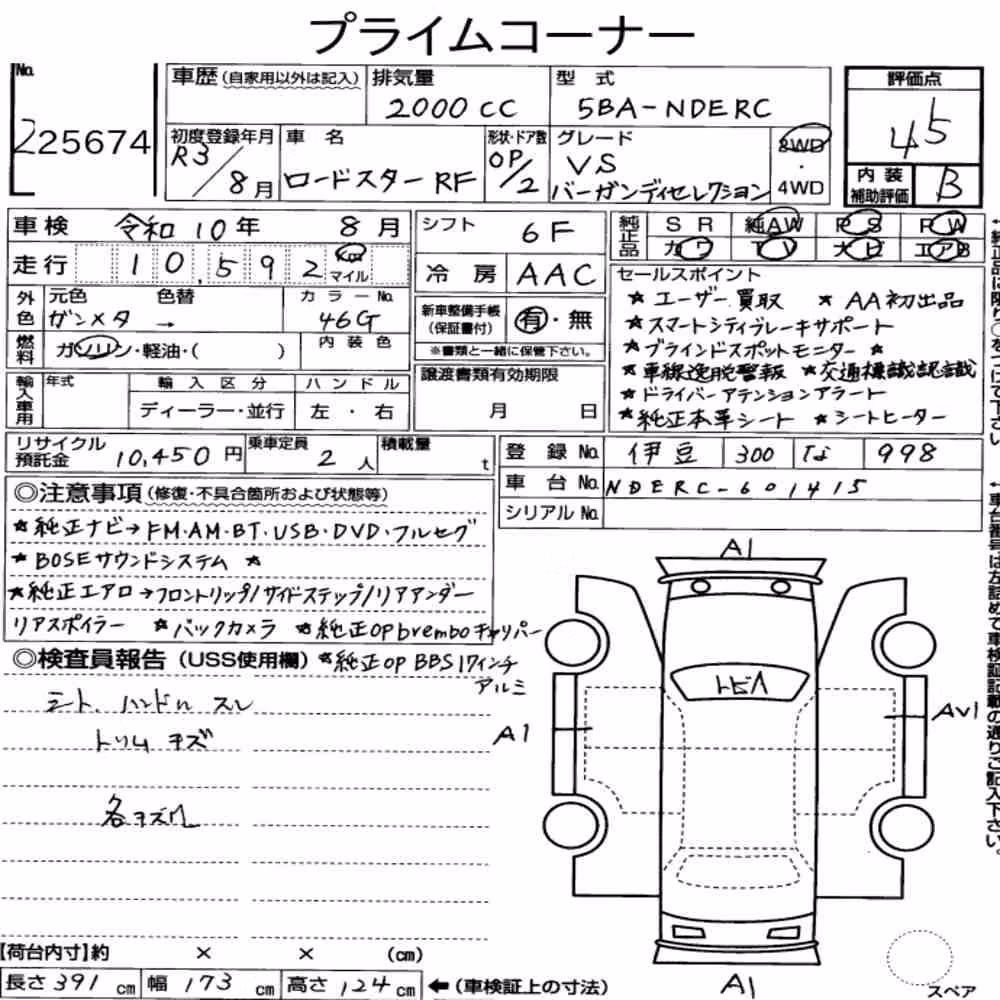 プライムコーナー
No. 225674
車歴 (自家用以外は記入)
排気量 2000 CC
型式 5BA-NDERC
評価点 4.5
初度登録年月 R3/8月
車名 ロードスターRF
形状・ドア数 OP/2
グレード VS バーガンディセレクション
2WD・4WD
内装補助評価 B
車検 令和10年 8月
シフト 6F
純正品 SR 純AW PS PW
カワ TV ナビ エアB
走行 10,592 km マイル
冷房 AAC
外色 元色 色替 カラーNo.
ガンメタ → 46G
内装色
燃料 ガソリン・軽油・( )
新車整備手帳(保証書付) 有・無
※書類と一緒に保管下さい。
セールスポイント
★ユーザー買取 ★AA初出品
★スマートシティブレーキサポート
★ブラインドスポットモニター ★
★車線逸脱警報 ★交通標識認識
★ドライバーアテンションアラート
★純正本革シート ★シートヒーター
輸入車用 年式 輸入区分 ハンドル
ディーラー・並行 左・右
譲渡書類有効期限
月 日
リサイクル預託金 10,450円
乗車定員 2人
積載量 t
登録No. 伊豆 300 な 998
車台No. NDERC-601415
シリアルNo.
◎注意事項 (修復・不具合箇所および状態等)
★純正ナビ→FM・AM・BT・USB・DVD・フルセグ
★BOSEサウンドシステム ★
★純正エアロ→フロントリップ/サイドステップ/リアアンダー
リアスポイラー ★バックカメラ ★純正OPbremboキャリパー
◎検査員報告 (USS使用欄) ★純正OP BBS17インチ
アルミ
シート、ハンドルスレ
トリムキズ
各キズ
A1
トビA
A1
AV1
A1
【荷台内寸】約 × × (cm)
長さ391cm 幅173cm 高さ124cm ←(車検証上の寸法)
スペア
↑純正品は限り○をつけて下さい
↑車台番号は左詰めで車検証記載の通りご記入下さい。